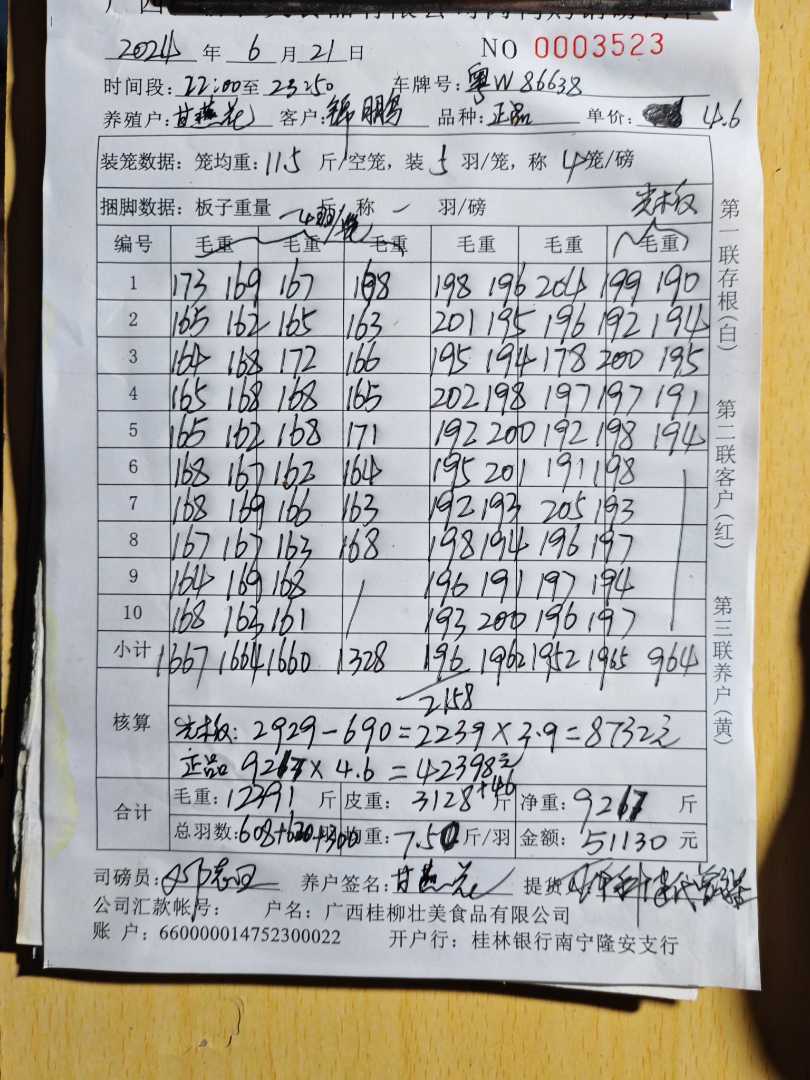 2024 年 6 月 21 日 NO 0003523
时间段: 22:00 至 23:50 车牌号: 粤W 86638
养殖户: 甘燕花 客户: 锦鹏 品种: 正品 单价: 4.6
装笼数据: 笼均重: 11.5 斤/空笼, 装 5 羽/笼, 称 4 笼/磅
捆脚数据: 板子重量 斤 称 羽/磅 光板
4羽/笼
编号 毛重 毛重 毛重 毛重 毛重 毛重
1 173 169 167 168 198 196 204 199 190
2 165 162 165 163 201 195 196 192 194
3 164 168 172 166 195 194 178 200 195
4 165 168 168 165 202 198 197 197 191
5 165 162 168 171 192 200 192 198 194
6 168 167 162 164 195 201 191 198
7 168 169 166 163 192 193 205 193
8 167 167 163 168 198 194 196 197
9 164 169 168 196 191 197 194
10 168 163 161 193 200 196 197
小计 1667 1664 1660 1328 196 1962 1952 1965 964
2158
核算 光板: 2929-690=2239×3.9=8732元
正品 9217×4.6=42398元
合计 毛重: 12391 斤 皮重: 3128+46 斤 净重: 9217 斤
总羽数: 608+620+300 均重: 7.50 斤/羽 金额: 51130 元
司磅员: 养户签名: 甘燕花 提货
公司汇款帐号: 户名: 广西桂柳壮美食品有限公司
账 户: 660000014752300022 开户行: 桂林银行南宁隆安支行
第一联存根(白)
第二联客户(红)
第三联养户(黄)